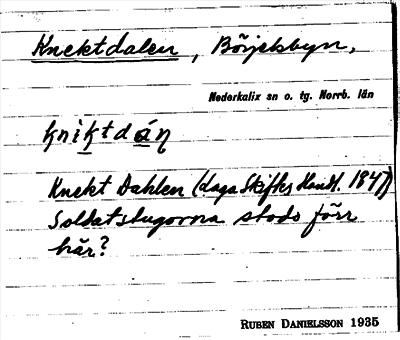 Knektdalen, Börjelsbyn,
Nederkalix sn o. tg. Norrb. län
kniktdáṇ
Knekt Dahlen (Laga Skiftes Handl. 1847)
Soldatstugorna stodo förr
här?
RUBEN DANIELSSON 1935